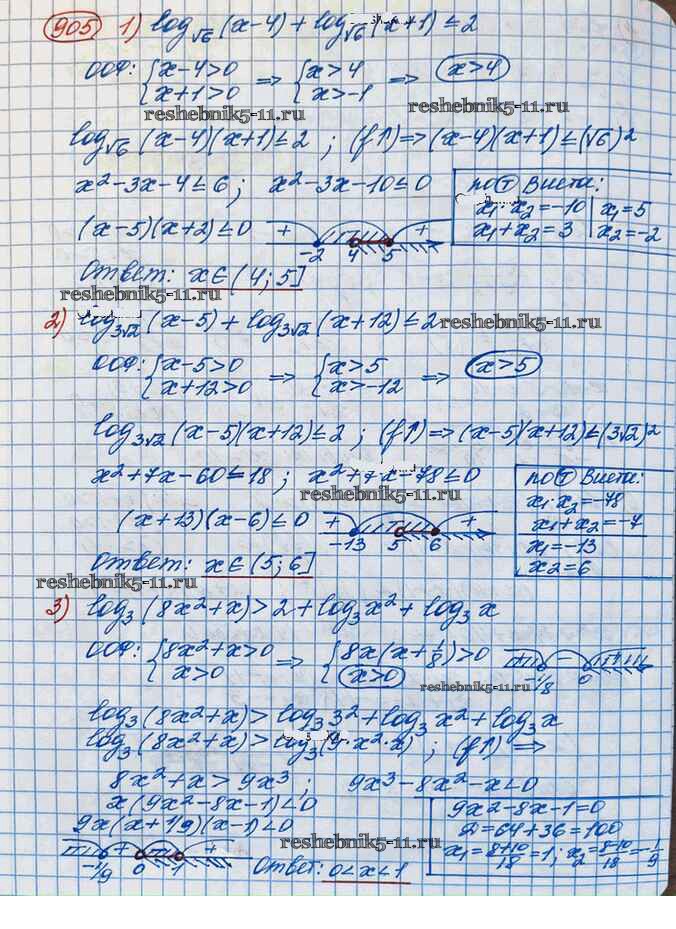 905 1) log√6 (x-4) + log√6 (x+1) ≤ 2
ООФ: {x-4>0 x+1>0 => {x>4 x>-1 => x>4
reshebnik5-11.ru reshebnik5-11.ru
log√6 (x-4)(x+1) ≤ 2 ; (f↑) => (x-4)(x+1) ≤ (√6)²
x²-3x-4≤6; x²-3x-10≤0
по Т Виета:
x₁·x₂=-10 | x₁=5
x₁+x₂=3 | x₂=-2
(x-5)(x+2)≤0 + -2 4 5 +
Ответ: x∈(4;5]
reshebnik5-11.ru
2) log3√2 (x-5) + log3√2 (x+12) ≤ 2 reshebnik5-11.ru
ООФ: {x-5>0 x+12>0 => {x>5 x>-12 => x>5
log3√2 (x-5)(x+12) ≤ 2 ; (f↑) => (x-5)(x+12) ≤ (3√2)²
x²+7x-60≤18 ; x²+7x-78≤0
reshebnik5-11.ru
по Т Виета:
x₁·x₂=-78
x₁+x₂=-7
x₁=-13
x₂=6
(x+13)(x-6)≤0 + -13 5 6 +
Ответ: x∈(5;6]
reshebnik5-11.ru
3) log₃(8x²+x) > 2 + log₃x² + log₃x
ООФ: {8x²+x>0 x>0 => {8x(x+1/8)>0 x>0 - -1/8 0
reshebnik5-11.ru
log₃(8x²+x) > log₃3² + log₃x² + log₃x
log₃(8x²+x) > log₃(9·x²·x) ; (f↑) =>
8x²+x > 9x³ ; 9x³-8x²-x<0
x(9x²-8x-1)<0
9x(x+1/9)(x-1)<0
9x²-8x-1=0
D=64+36=100
x₁=8+10/18=1; x₂=8-10/18=-1/9
reshebnik5-11.ru
-1/9 + 0 - 1 + Ответ: 0<x<1